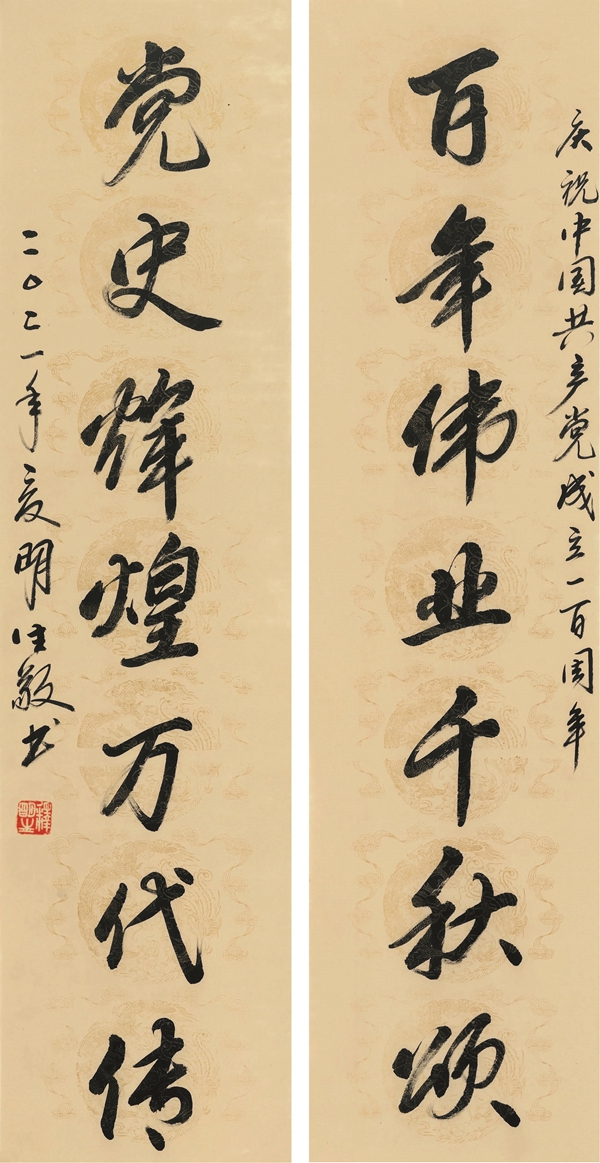 庆祝中国共产党成立一百周年
百年伟业千秋颂
党史辉煌万代传
二〇二一年夏明生敬书
释明生